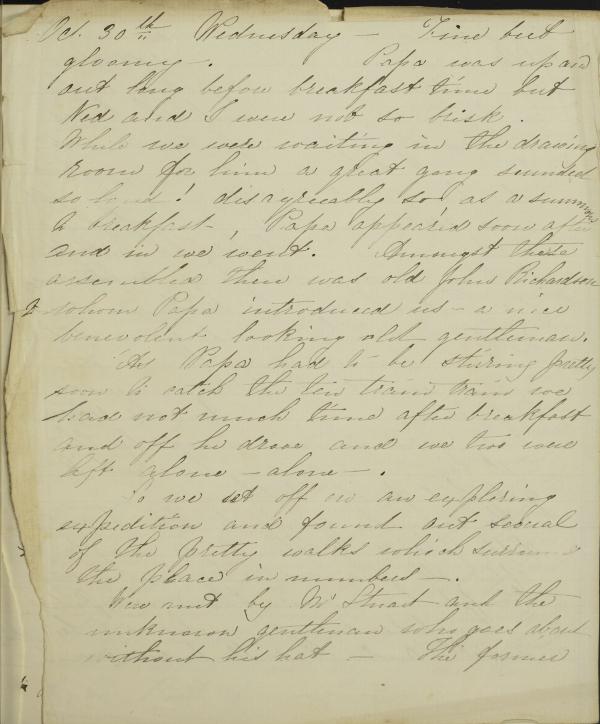 Oct. 30th Wednesday — Fine but
gloomy —. Papa was up and
out long before breakfast time but
Ned and I were not so brisk.
While we were waiting in the drawing
room for him a great gong sounded
so loud! disagreeably so as a summons
to breakfast —, Papa appeared soon after
and in we went. Amongst those
assembled there was old John Richardson
to whom Papa introduced us — a nice
benevolent looking old gentleman.
As Papa had to be stirring pretty
soon to catch the ten train train we
had not much time after breakfast
and off he drove and we two were
left alone — alone —.
So we set off on an exploring
expedition and found out several
of the pretty walks which surround
the place in numbers —.
Were met by Mr Stuart and the
unknown gentleman who goes about
without his hat — The former